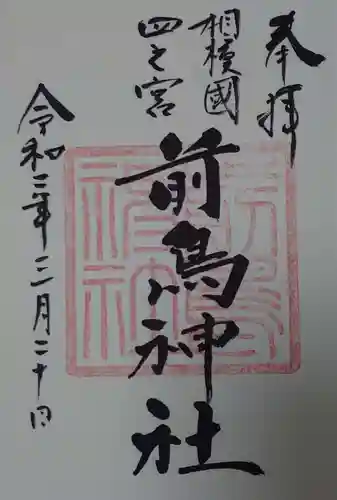 奉拝
相模國
四之宮
前鳥神社
令和三年三月二十日